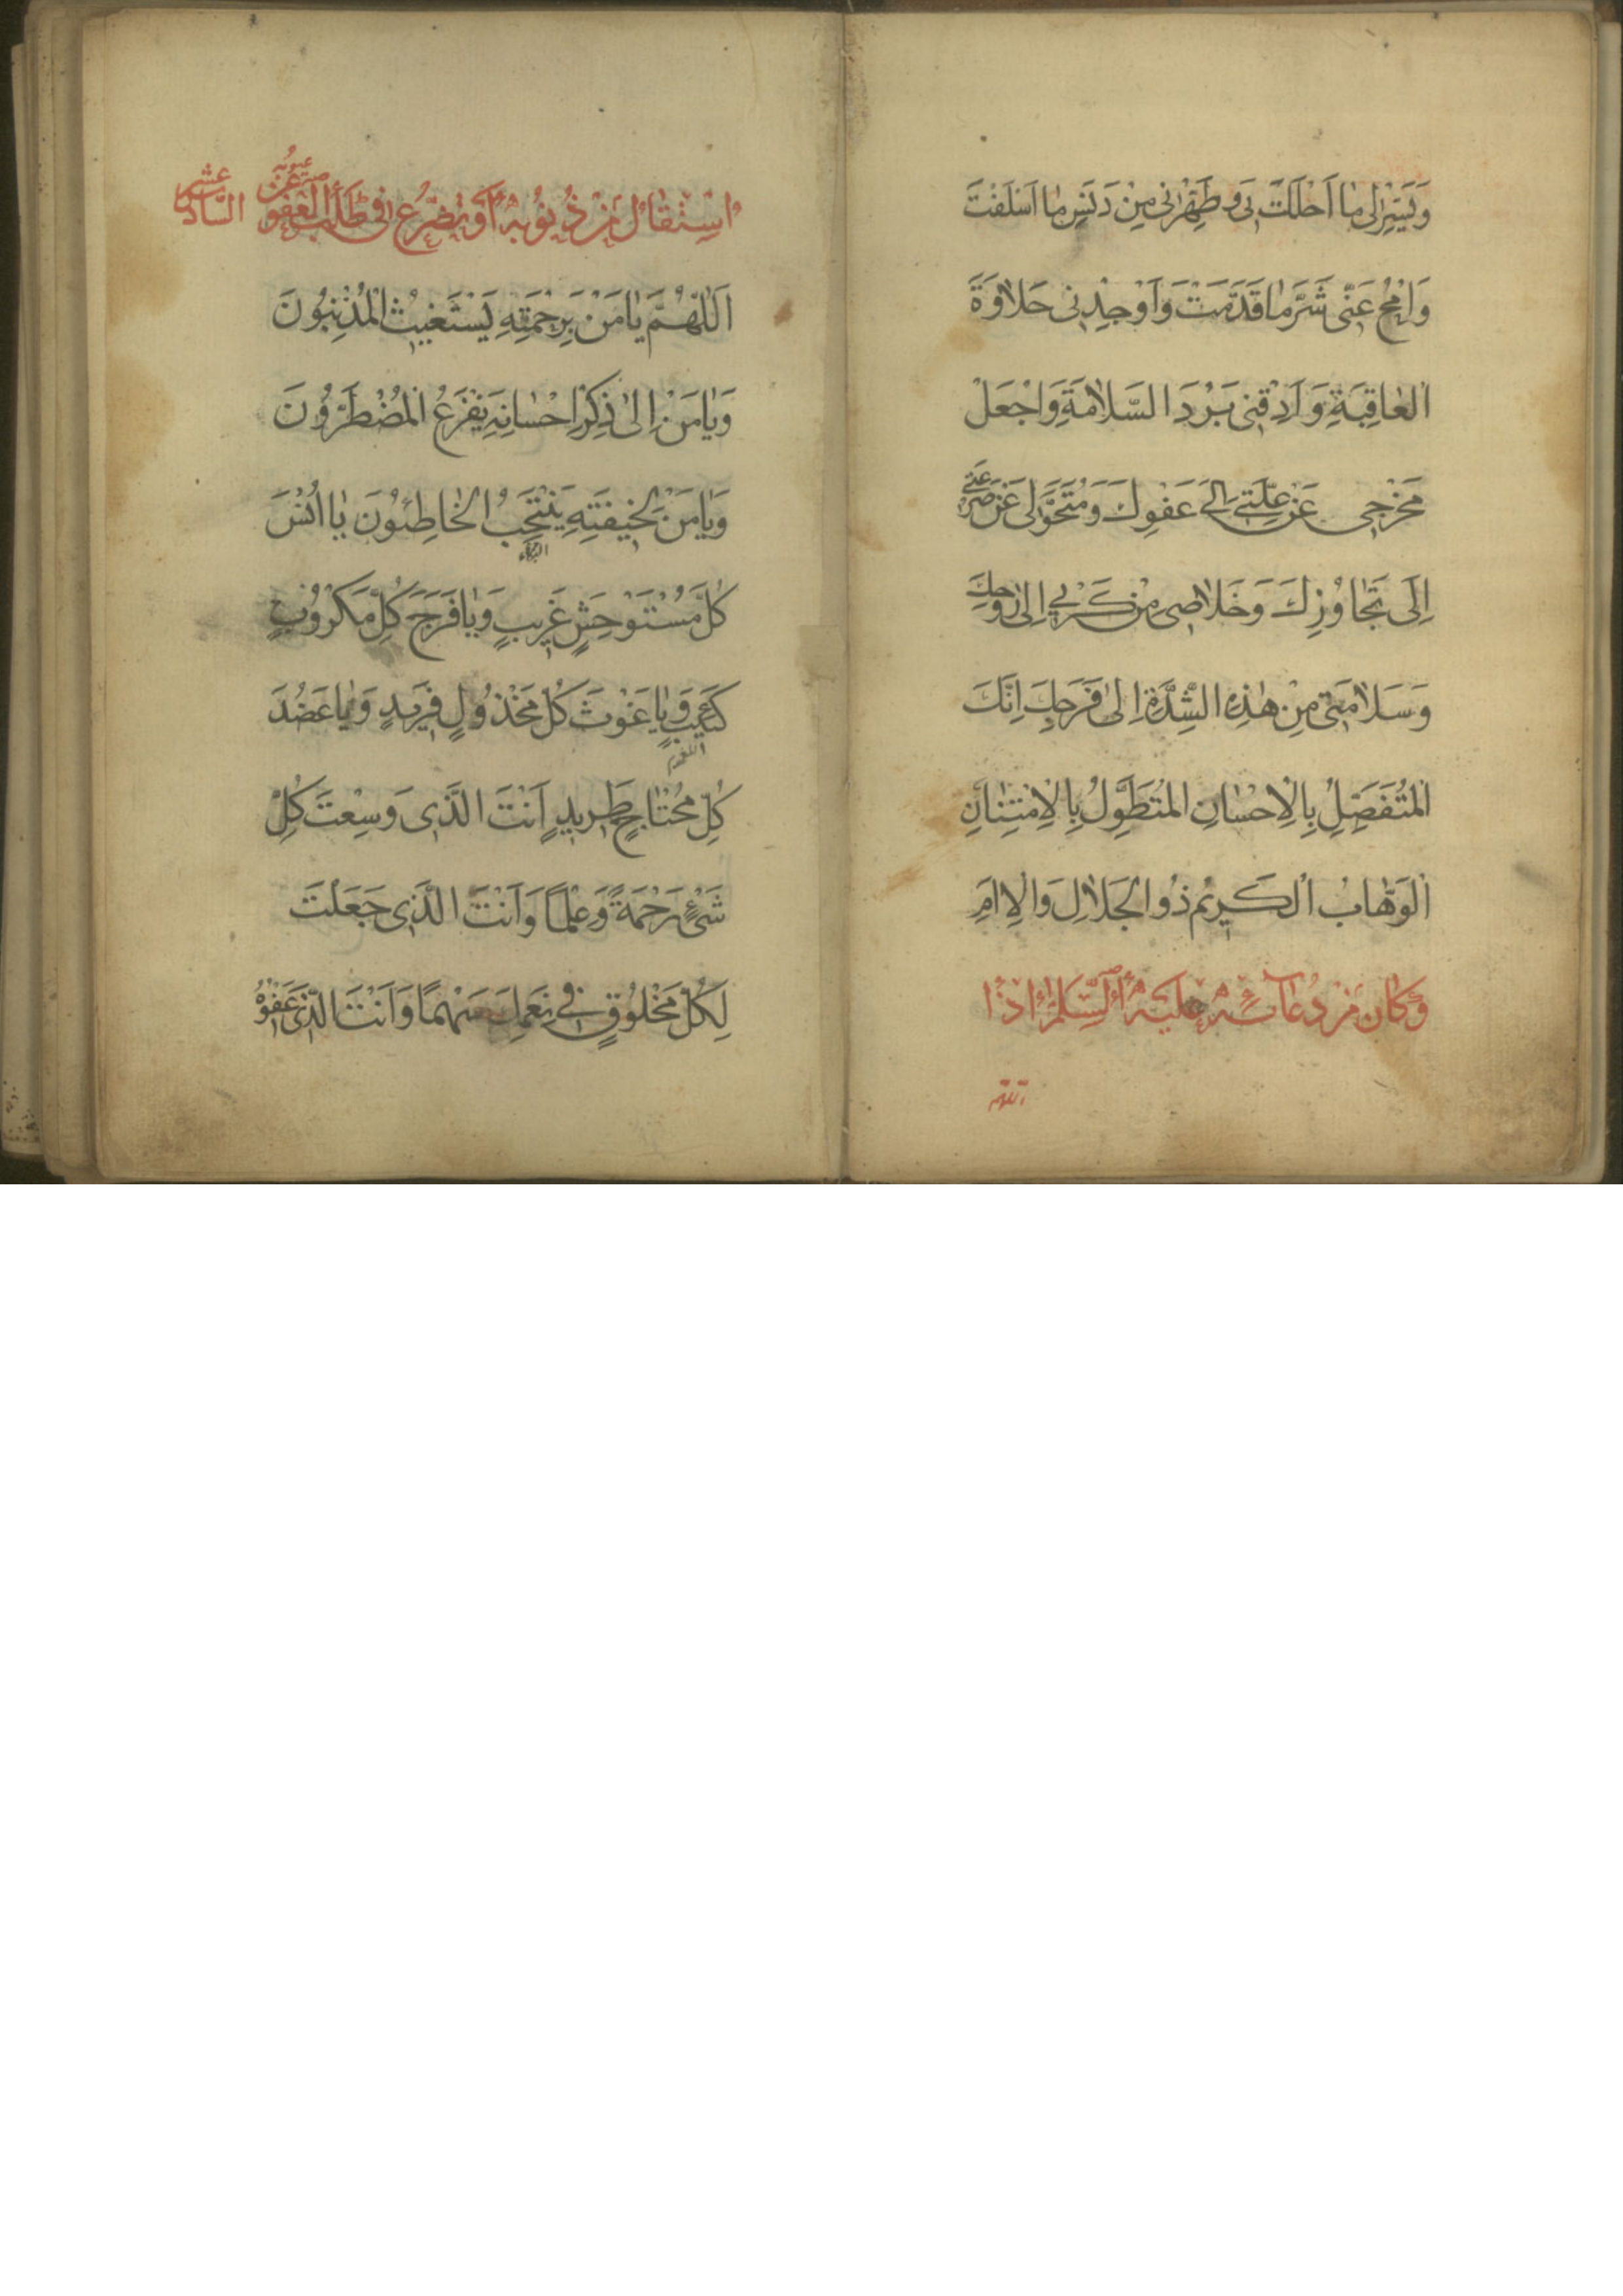 وَيَسِّرْ لِي مَا أَحْلَلْتَ بِي وَطَهِّرْنِي مِنْ دَنَسِ مَا أَسْلَفْتُ
وَامْحُ عَنِّي شَرَّ مَا قَدَّمْتُ وَأَوْجِدْنِي حَلَاوَةَ
الْعَاقِبَةِ وَأَذِقْنِي بَرْدَ السَّلَامَةِ وَاجْعَلْ
مَخْرَجِي عَنْ عِلَّتِي إِلَى عَفْوِكَ وَمُتَحَوَّلِي عَنْ صَرْعَتِي
إِلَى تَجَاوُزِكَ وَخَلَاصِي مِنْ كَرْبِي إِلَى رَوْحِكَ
وَسَلَامَتِي مِنْ هَذِهِ الشِّدَّةِ إِلَى فَرَجِكَ إِنَّكَ
الْمُتَفَضِّلُ بِالْإِحْسَانِ الْمُتَطَوِّلُ بِالْإِمْتِنَانِ
الْوَهَّابُ الْكَرِيمُ ذُو الْجَلَالِ وَالْإِكْرَامِ
وَكَانَ مِنْ دُعَائِهِ عَلَيْهِ السَّلَامُ إِذَا
اللهم
اسْتَقَالَ مِنْ ذُنُوبِهِ أَوْ تَضَرَّعَ فِي طَلَبِ الْعَفْوِ عَنْ عُيُوبِهِ السادس عشر
اَللّٰهُمَّ يَا مَنْ بِرَحْمَتِهِ يَسْتَغِيثُ الْمُذْنِبُونَ
وَيَا مَنْ إِلَى ذِكْرِ إِحْسَانِهِ يَفْزَعُ الْمُضْطَرُّونَ
وَيَا مَنْ لِخِيفَتِهِ يَنْتَحِبُ الْخَاطِئُونَ يَا أُنْسَ
البكاء
كُلِّ مُسْتَوْحِشٍ غَرِيبٍ وَيَا فَرَجَ كُلِّ مَكْرُوبٍ
كَئِيبٍ وَيَا غَوْثَ كُلِّ مَخْذُولٍ فَرِيدٍ وَيَا عَضُدَ
كُلِّ مُحْتَاجٍ طَرِيدٍ أَنْتَ الَّذِي وَسِعْتَ كُلَّ
شَيْءٍ رَحْمَةً وَعِلْمًا وَأَنْتَ الَّذِي جَعَلْتَ
لِكُلِّ مَخْلُوقٍ فِي نِعَمِكَ سَهْمًا وَأَنْتَ الَّذِي عَفْوُهُ